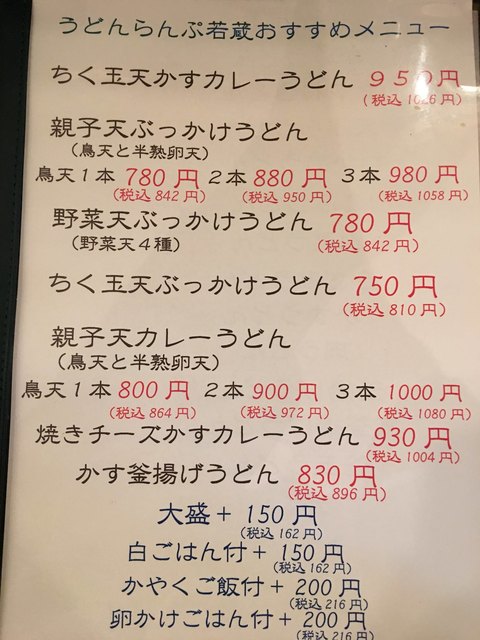 うどんらんぷ若蔵おすすめメニュー
ちく玉天かすカレーうどん 950円
(税込 1026 円)
親子天ぶっかけうどん
(鳥天と半熟卵天)
鳥天1本 780 円 2本 880 円 3本 980 円
(税込 842 円) (税込 950 円) (税込 1058 円)
野菜天ぶっかけうどん 780 円
(野菜天4種) (税込 842 円)
ちく玉天ぶっかけうどん 750 円
(税込 810 円)
親子天カレーうどん
(鳥天と半熟卵天)
鳥天1本 800 円 2本 900 円 3本 1000 円
(税込 864 円) (税込 972 円) (税込 1080 円)
焼きチーズかすカレーうどん 930 円
(税込 1004 円)
かす釜揚げうどん 830 円
(税込 896 円)
大盛+ 150 円
(税込 162 円)
白ごはん付+ 150 円
(税込 162 円)
かやくご飯付+ 200 円
(税込 216 円)
卵かけごはん付+ 200 円
(税込 216 円)